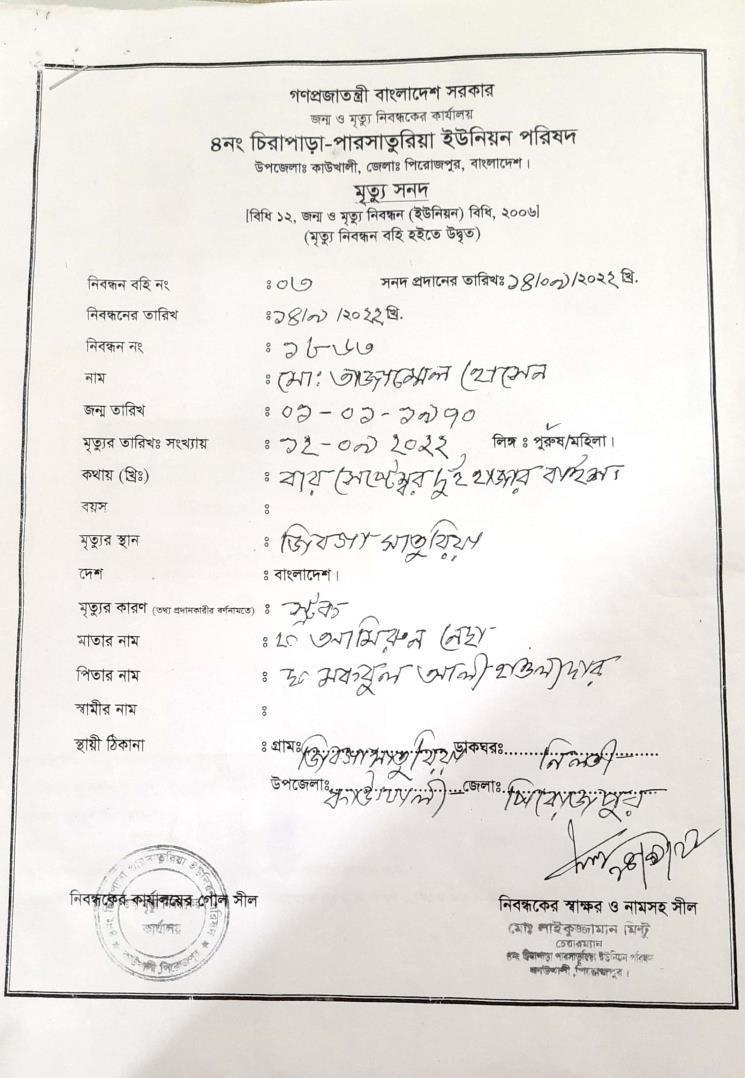 গণপ্রজাতন্ত্রী বাংলাদেশ সরকার
জন্ম ও মৃত্যু নিবন্ধকের কার্যালয়
৪নং চিরাপাড়া-পারসাতুরিয়া ইউনিয়ন পরিষদ
উপজেলাঃ কাউখালী, জেলাঃ পিরোজপুর, বাংলাদেশ।
মৃত্যু সনদ
[বিধি ১২, জন্ম ও মৃত্যু নিবন্ধন (ইউনিয়ন) বিধি, ২০০৬]
(মৃত্যু নিবন্ধন বহি হইতে উদ্বৃত)
নিবন্ধন বহি নং ঃ ০৩ সনদ প্রদানের তারিখঃ ১৪/০৯/২০২২ খ্রি.
নিবন্ধনের তারিখ ঃ ১৪/৯/২০২২ খ্রি.
নিবন্ধন নং ঃ ১৮৬৩
নাম ঃ মো: তাজাম্মেল হোসেন
জন্ম তারিখ ঃ ০১-০১-১৯৭০
মৃত্যুর তারিখঃ সংখ্যায় ঃ ১২-০৯ ২০২২ লিঙ্গ ঃ পুরুষ/মহিলা।
কথায় (খ্রিঃ) ঃ বার সেপ্টেম্বর দুই হাজার বাইশ।
বয়স ঃ
মৃত্যুর স্থান ঃ জিবগা সাতুরিয়া
দেশ ঃ বাংলাদেশ।
মৃত্যুর কারণ (তথ্য প্রদানকারীর বর্ণনামতে) ঃ স্ট্রক
মাতার নাম ঃ আমিরুন নেছা
পিতার নাম ঃ মকবুল আলী হাওলাদার
স্বামীর নাম ঃ
স্থায়ী ঠিকানা ঃ গ্রামঃ জিবগা সাতুরিয়া ডাকঘরঃ নিলতী
উপজেলাঃ কাউখালী জেলাঃ পিরোজপুর
নিবন্ধকের কার্যালয়ের গোল সীল
কার্যালয়
নিবন্ধকের স্বাক্ষর ও নামসহ সীল
মোঃ লাইকুজ্জামান মিন্টু
চেয়ারম্যান
৪নং চিরাপাড়া পারসাতুরিয়া ইউনিয়ন পরিষদ
কাউখালী, পিরোজপুর।